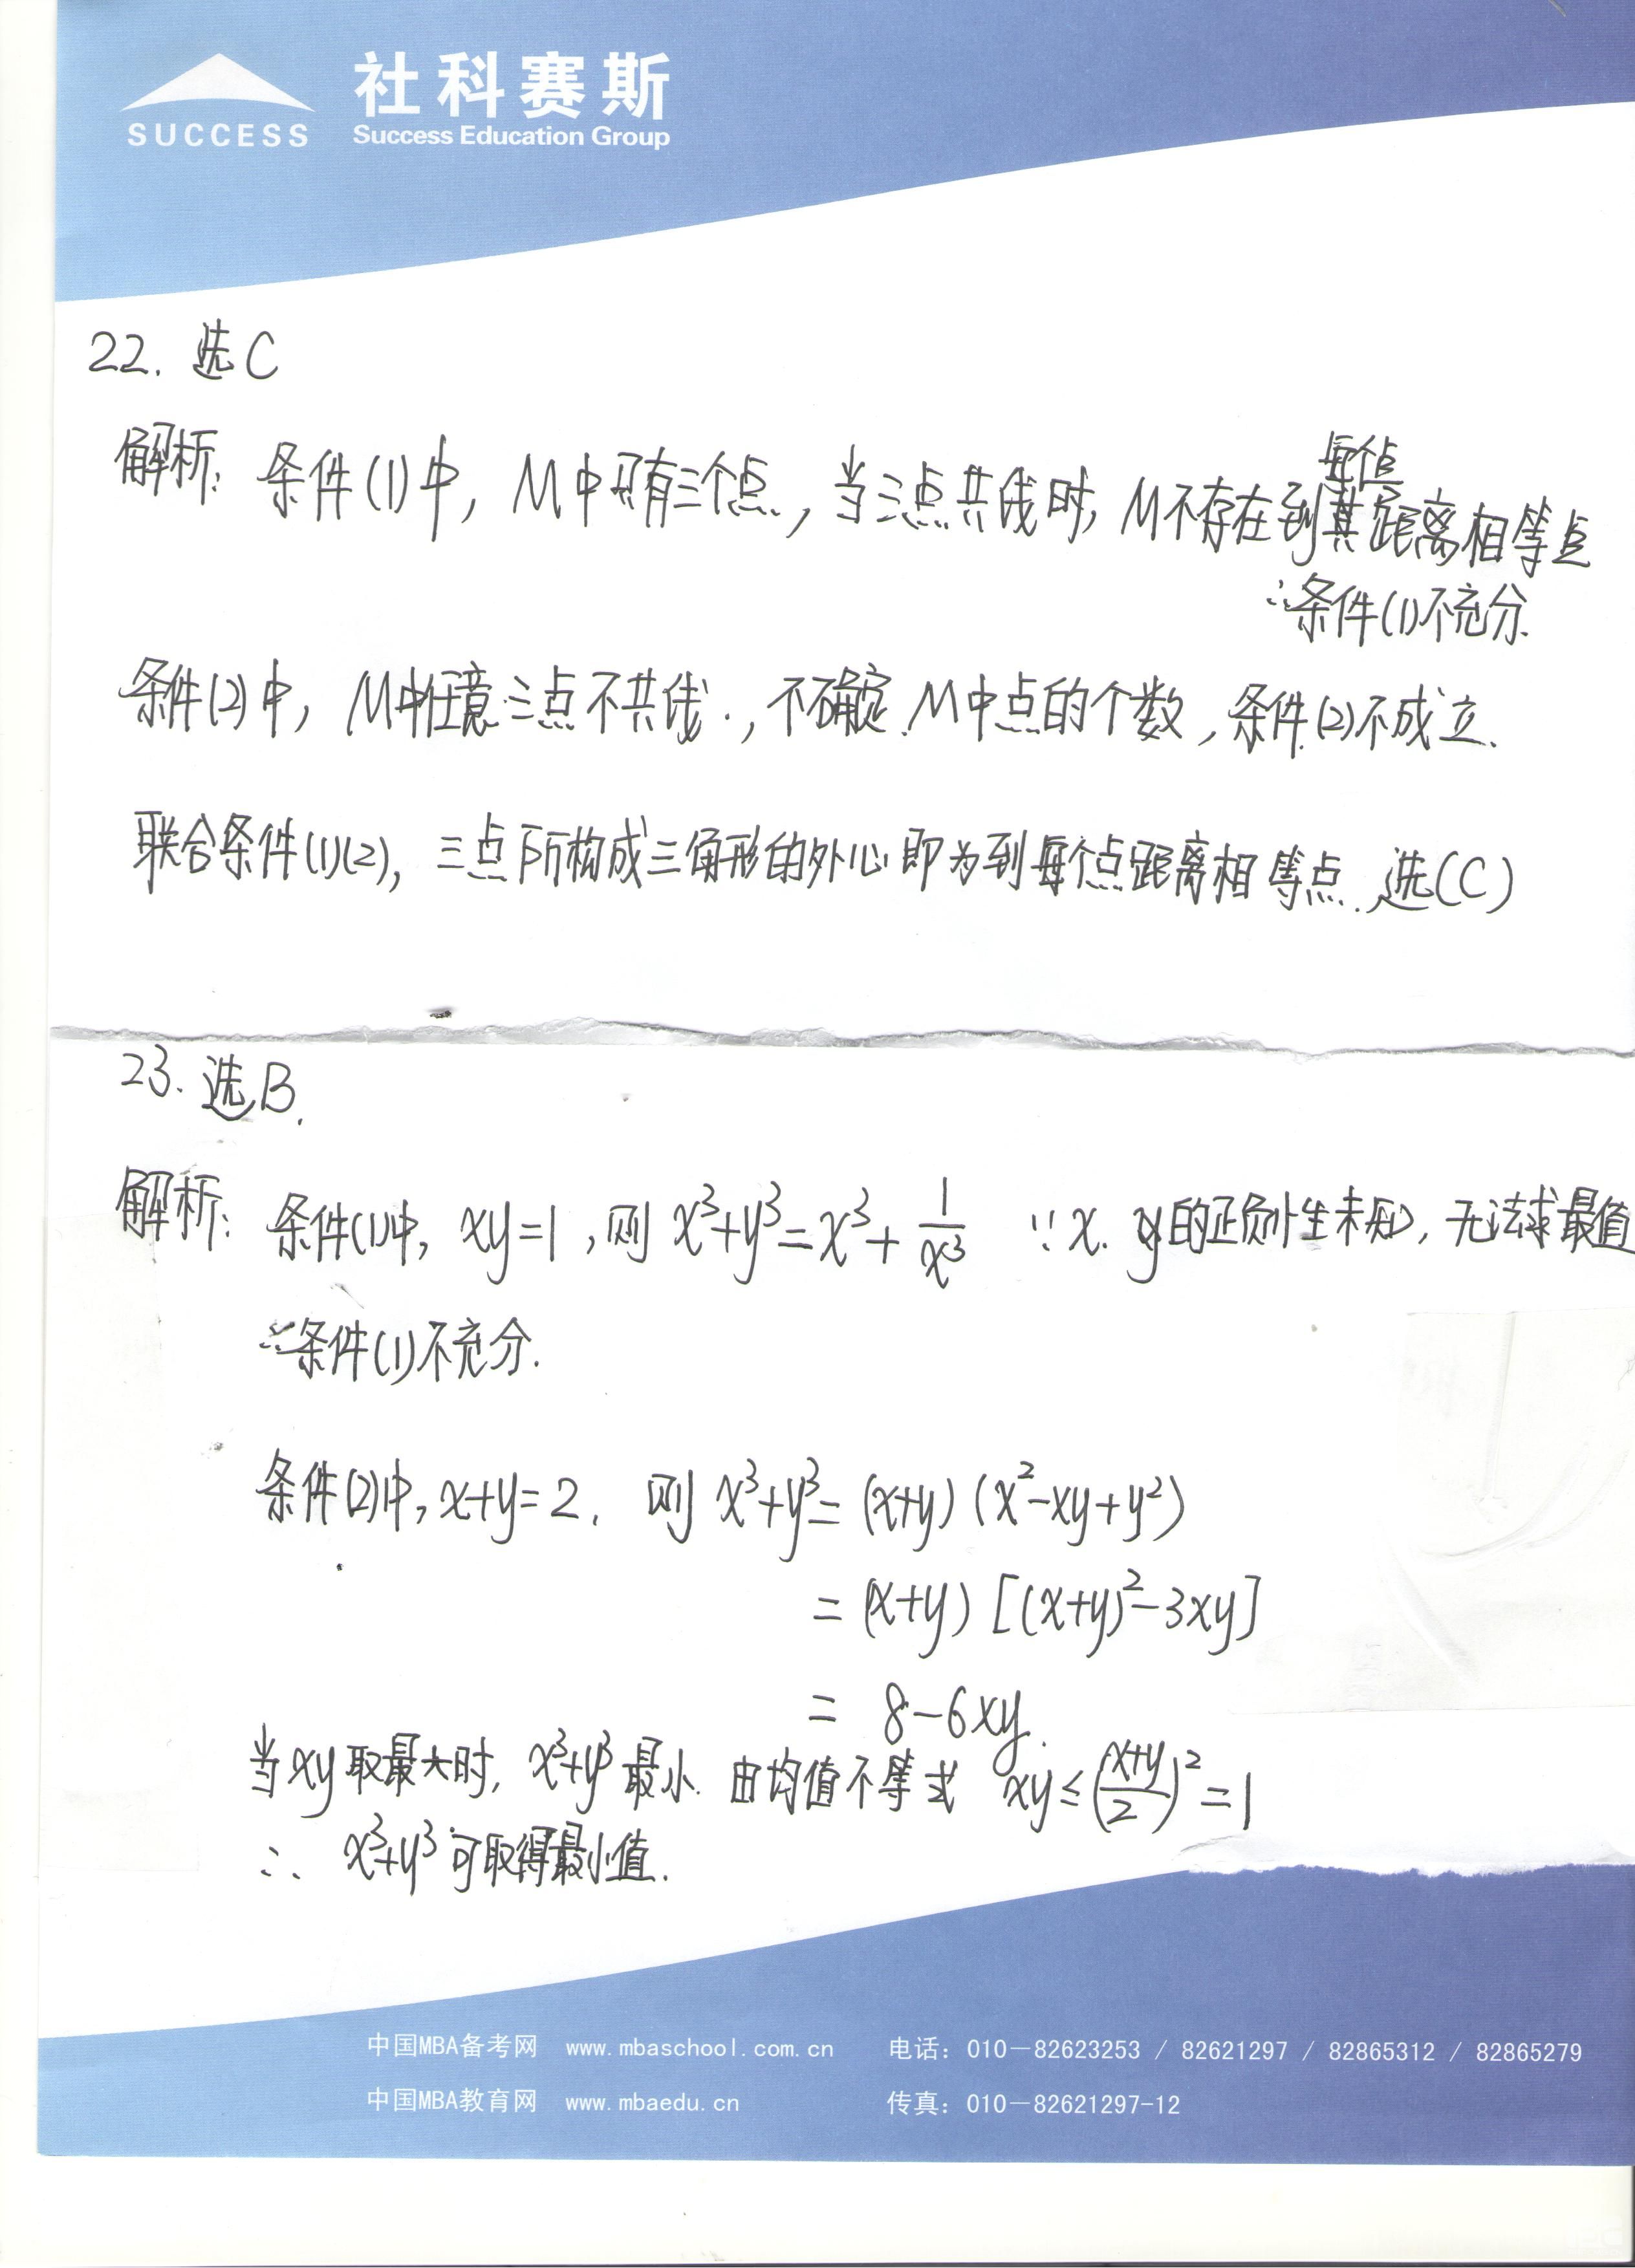 社科赛斯
SUCCESS
Success Education Group
22. 选C
解析: 条件(1)中, M中只有三个点, 当三点共线时, M不存在到其每个点距离相等点
∴条件(1)不充分.
条件(2)中, M中任意三点不共线., 不确定M中点的个数, 条件(2)不成立.
联合条件(1)(2), 三点所构成三角形的外心即为到每个点距离相等点. 选(C)
23. 选B.
解析: 条件(1)中, xy=1, 则 x³+y³=x³+1/x³ ∵x. y的正负性未知, 无法求最值
∴条件(1)不充分.
条件(2)中, x+y=2. 则 x³+y³=(x+y)(x²-xy+y²)
=(x+y)[(x+y)²-3xy]
= 8-6xy.
当xy取最大时, x³+y³最小. 由均值不等式 xy≤((x+y)/2)²=1
∴ x³+y³可取得最小值.
中国MBA备考网 www.mbaschool.com.cn 电话: 010-82623253 / 82621297 / 82865312 / 82865279
中国MBA教育网 www.mbaedu.cn 传真: 010-82621297-12